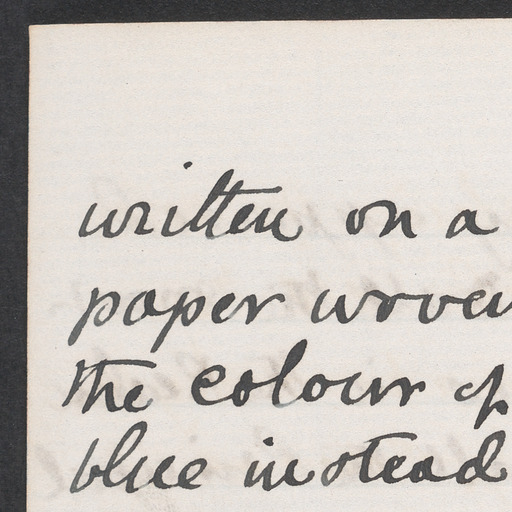 written on a
paper woven
the colour of
blue instead